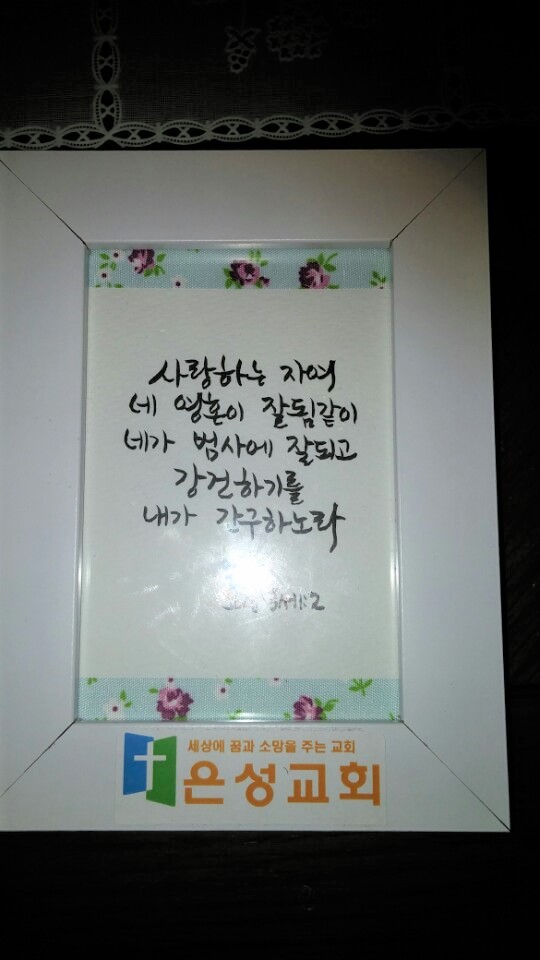 사랑하는 자여
네 영혼이 잘됨같이
네가 범사에 잘되고
강건하기를
내가 간구하노라
1:2
세상에 꿈과 소망을 주는 교회
은성교회